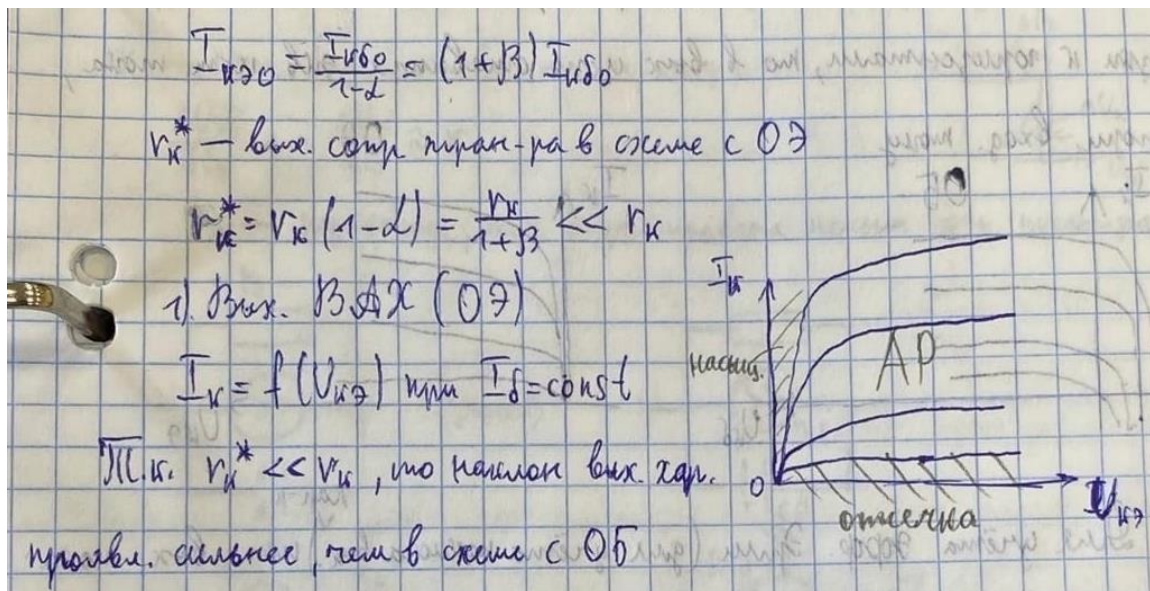 Iкэо = Iкбо/1-α = (1+β) Iкбо
rк* — вых. сопр тран-ра в схеме с ОЭ
rк* = rк (1-α) = rк/1+β << rк
1). Вых. ВАХ (ОЭ)
Iк = f(Uкэ) при Iб=const
Т.к. rк* << rк, то наклон вых. хар.
проявл. сильнее, чем в схеме с ОБ
Iк
насыщ.
АР
0
отсечка
Uкэ